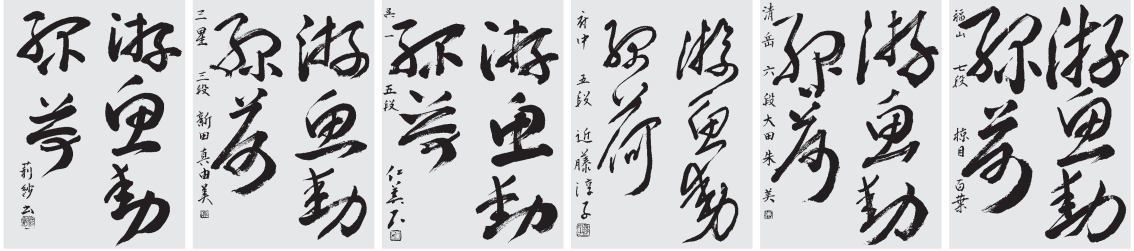 游魚動
緑荷
莉紗書
游魚動
緑荷
三星 三段 新田真由美
游魚動
緑荷
呉一 五段 仁美書
游魚動
緑荷
府中 五段 近藤淳子
游魚動
緑荷
清岳 六段 大田朱美
游魚動
緑荷
福山 七段 百葉